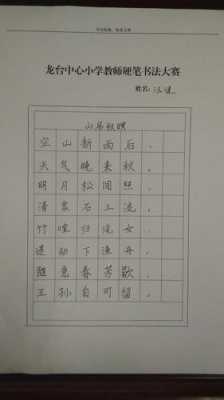 龙台中心小学教师硬笔书法大赛
姓名:
山居秋暝
空山新雨后，
天气晚来秋。
明月松间照，
清泉石上流。
竹喧归浣女，
莲动下渔舟。
随意春芳歇，
王孙自可留。